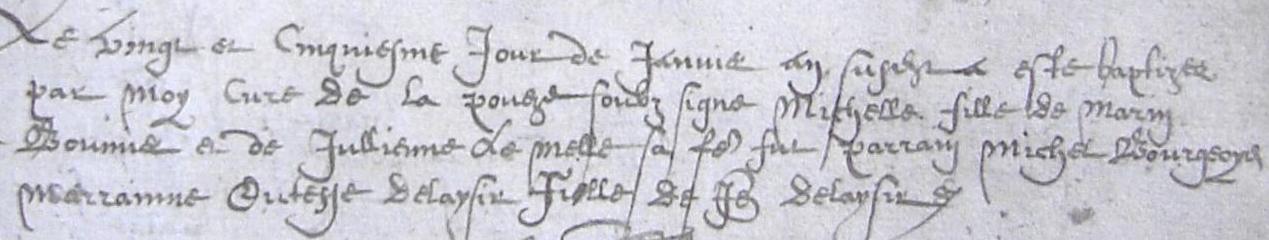 Le vingt et cinquiesme Jour de Janvier an susdit a este baptizee
par moy Cure de la poueze soubz signe Michelle fille de Marin
Bonnier et de Jullienne Le Melle sa fe fut parrain Michel Bourgeoys
marraine delaysir fille de Jeh delaysir